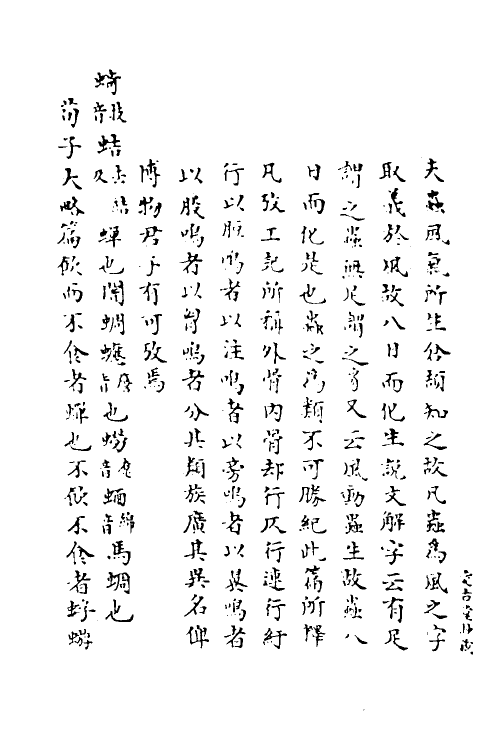 夫蟲風氣所生倉頡知之故凡蟲為風之字
取義於風故八日而化生說文解字云有足
謂之蟲無足謂之豸又云風動蟲生故蟲八
日而化是也蟲之為類不可勝紀此篇所釋
凡攷工記所稱外骨內骨却行仄行連行紆
行以脰鳴者以注鳴者以旁鳴者以翼鳴者
以股鳴者以胷鳴者分其類族廣其異名俾
博物君子有可攷焉
音技蛣去結反蟬也闇蜩也蟧音蝒音綿馬蜩也
荀子大略篇飲而不食者蟬也不飲不食者蜉蝣